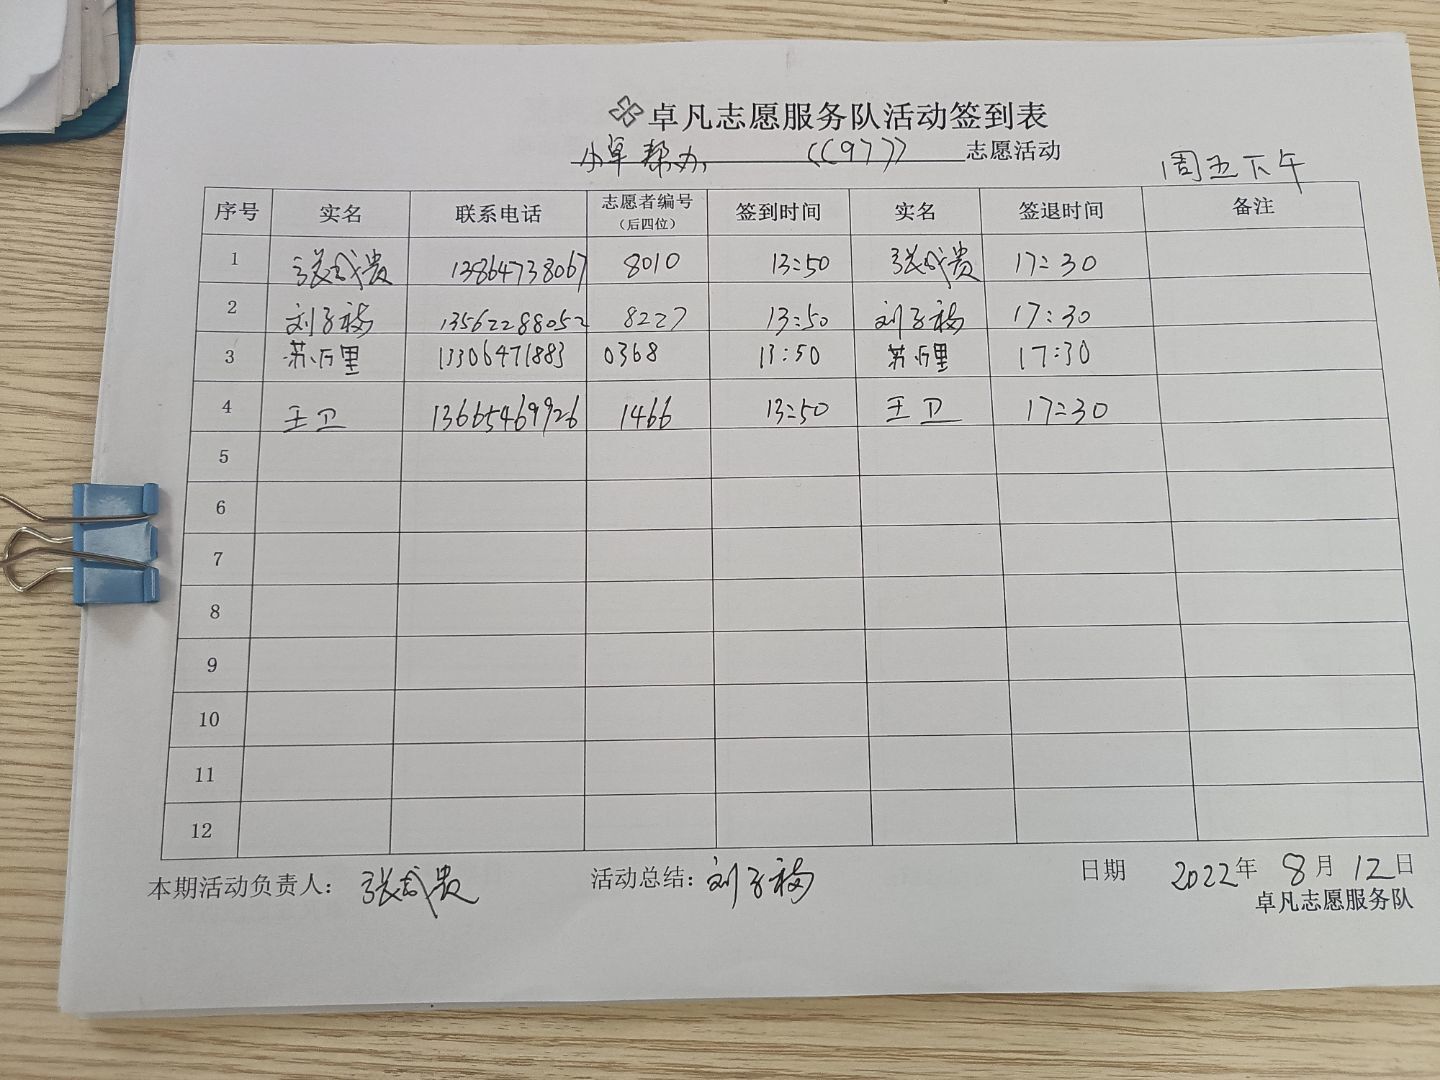 卓凡志愿服务队活动签到表
小卓帮办 ((97)) 志愿活动
周五下午
序号 实名 联系电话 志愿者编号（后四位） 签到时间 实名 签退时间 备注
1 张成贵 13864738067 8010 13:50 张成贵 17:30
2 刘子梅 13562288052 8227 13:50 刘子梅 17:30
3 苏万里 13306471883 0368 13:50 苏万里 17:30
4 王卫 13665469926 1466 13:50 王卫 17:30
5
6
7
8
9
10
11
12
本期活动负责人：张成贵 活动总结：刘子梅 日期 2022年 8月 12日
卓凡志愿服务队